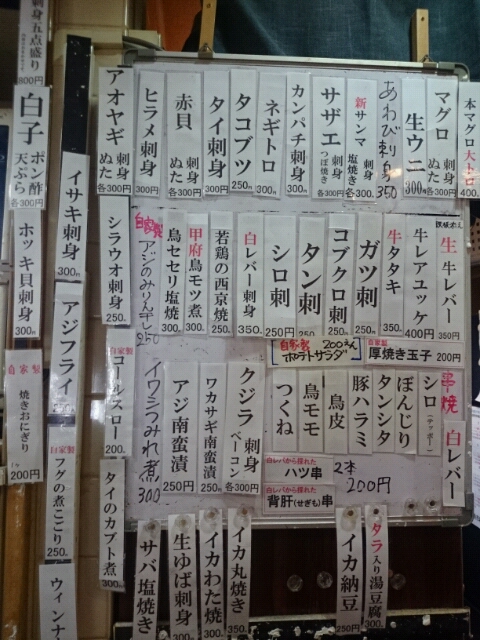 本マグロ大トロ 400
マグロ 刺身 ぬた 各300円
生ウニ 300円
あわび刺身 350
新サンマ 刺身 塩焼き 各300
サザエ 刺身 つぼ焼き 各300円
カンパチ刺身 300円
ネギトロ 300円
タコブツ 250円
タイ刺身 300円
赤貝 刺身 ぬた 各300円
ヒラメ刺身 300円
アオヤギ 刺身 ぬた 各300円
生牛レバー 350円
牛レアユッケ 400円
牛タタキ 350.
ガツ刺
コブクロ刺 250
タン刺 250
シロ刺 250円
白レバー刺身 350.
若鶏の西京焼 250.
甲府鳥モツ煮 300.
鳥セセリ塩焼 300.
自家製
アジのみりん干し 250
シラウオ刺身 250.
自家製 200えん
ポテトサラダ
自家製
厚焼き玉子 200円
串焼
白レバー
シロ (テッポー)
ぼんじり
タンシタ
豚ハラミ
鳥皮
鳥モモ
つくね
白レバから採れた
ハツ串
白レバから採れた
背肝(せぎも)串
2本
200円
クジラ 刺身 ベーコン 各300円
ワカサギ南蛮漬 250円
アジ南蛮漬 250円
イワシつみれ煮 300
自家製
コールスロー 200.
タイのカブト煮 300
タラ入り湯豆腐 300.
イカ納豆 250円
イカ丸焼き 350.
イカわた焼 300.
生ゆば刺身 300
サバ塩焼き
刺身五点盛り
800円
白子 ポン酢 天ぷら 各300円
ホッキ貝刺身 300円
自家製
焼きおにぎり
200円
イサキ刺身 300円
アジフライ
自家製
フグの煮こごり 250.
ウィンナ